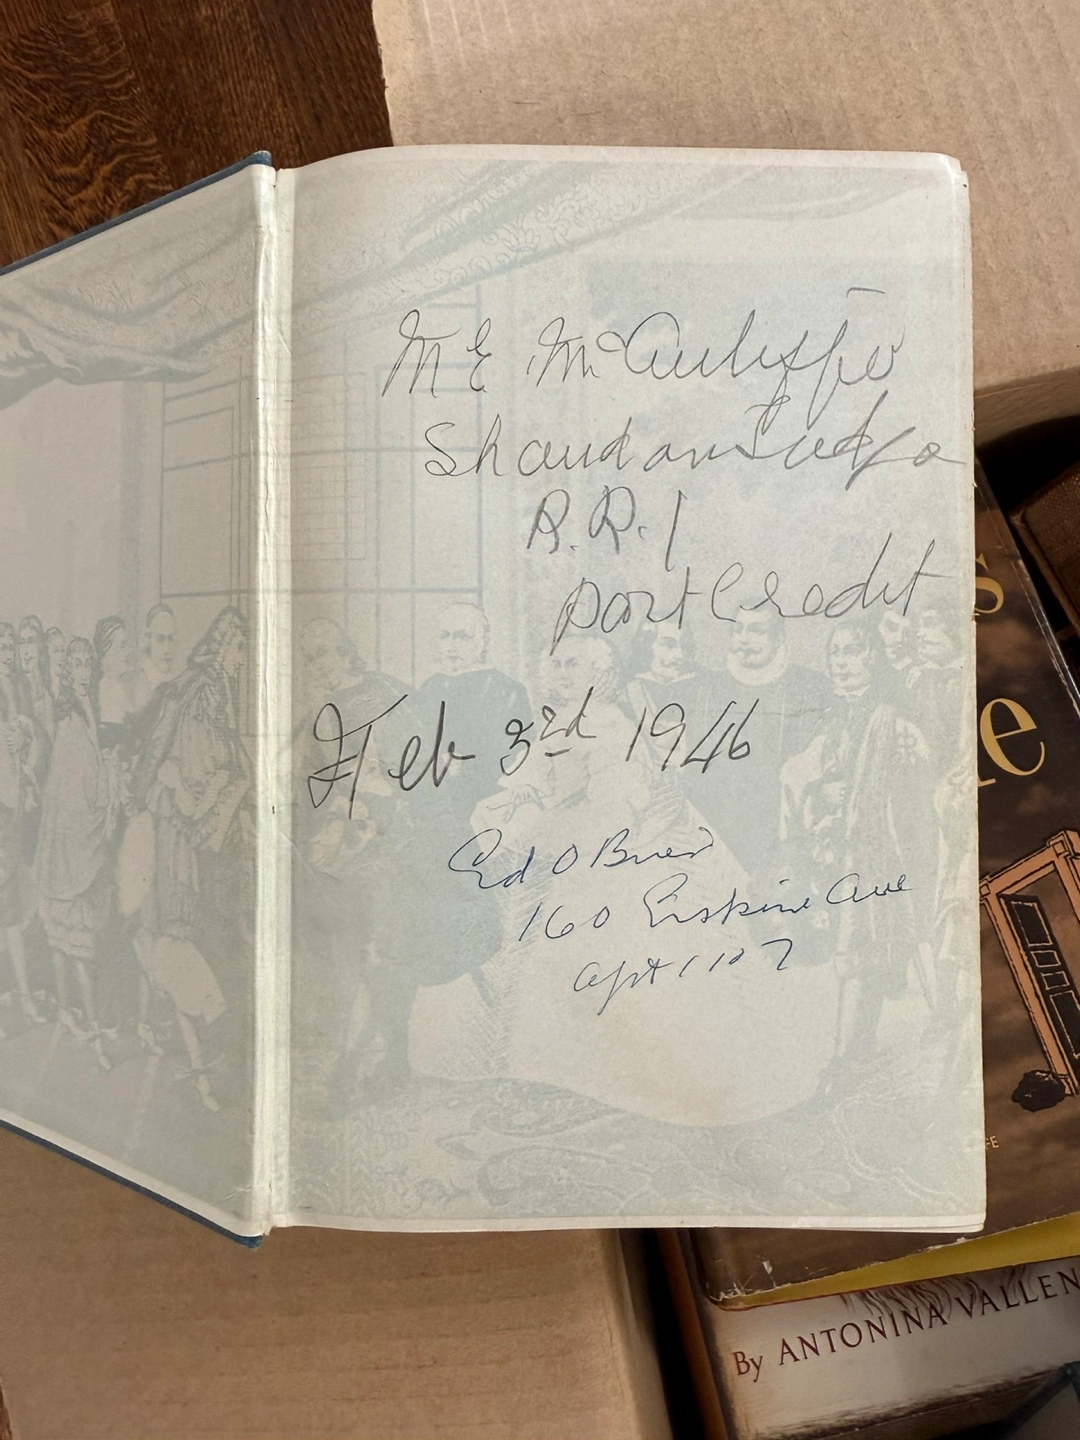 M E McAuliffe
Shandon Lodge
R.R. 1
Port Credit
Feb 3rd 1946
Ed O Brien
160 Erskine Ave
apt 1107
By ANTONINA VALLEN